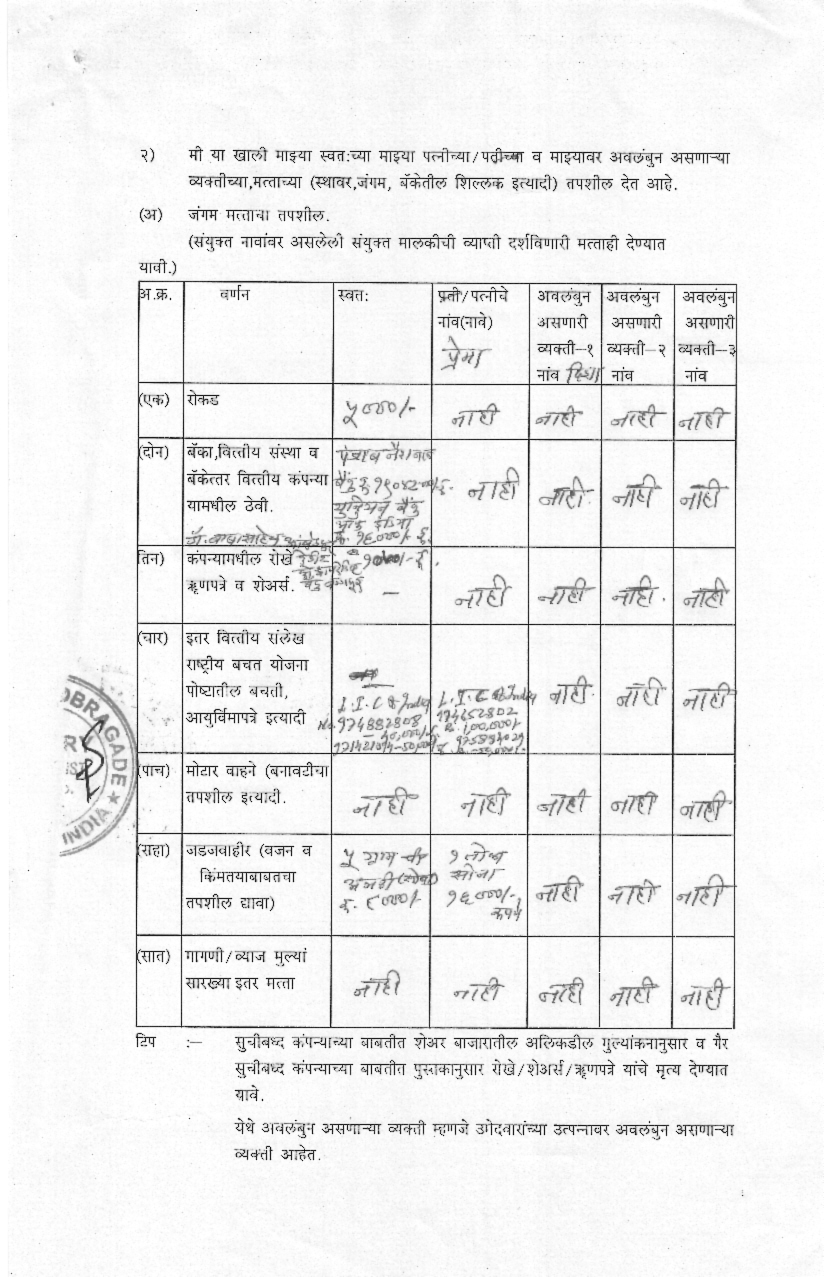 २) मी या खाली माझ्या स्वत:च्या माझ्या पत्नीच्या/पतीच्या व माझ्यावर अवलंबुन असणाऱ्या
व्यक्तीच्या,मत्ताच्या (स्थावर,जंगम, बॅकेतील शिल्लक इत्यादी) तपशील देत आहे.
(अ) जंगम मत्ताचा तपशील.
(संयुक्त नावांवर असलेली संयुक्त मालकीची व्याप्ती दर्शविणारी मत्ताही देण्यात
यावी.)
अ.क्र. वर्णन स्वत: प्रती/पत्नीचे अवलंबुन अवलंबुन अवलंबुन
नांव(नावे) असणारी असणारी असणारी
प्रेमा व्यक्ती–१ व्यक्ती–२ व्यक्ती–३
नांव नांव नांव
(एक) रोकड ५०००/- नाही नाही नाही नाही
(दोन) बॅका,वित्तीय संस्था व पंजाब नॅशनल
बॅकेत्तर वित्तीय कंपन्या बँक नाही नाही नाही नाही
यामधील ठेवी. युनियन बँक
ऑफ इंडिया
डॉ. बाबासाहेब आंबेडकर रु. १६०००/-
तिन) कंपन्यामधील रोखे
ऋणपत्रे व शेअर्स. – नाही नाही नाही नाही
(चार) इतर वित्तीय संलेख
राष्ट्रीय बचत योजना
पोष्टातील बचती, L.I.C of India L.I.C of India नाही नाही नाही
आयुर्विमापत्रे इत्यादी No. 974882808 974652802
1,00,000/-
(पाच) मोटार वाहने (बनावटीचा
तपशील इत्यादी. नाही नाही नाही नाही नाही
(राहा) जडजवाहीर (वजन व ५ ग्राम १ तोळा
किंमतयाबाबतचा अंगठी (सोना) सोना
तपशील द्यावा) रु. ८०००/- १६०००/- नाही नाही नाही
रूपये
(सात) गागणी/व्याज मुल्यां
सारख्या इतर मत्ता नाही नाही नाही नाही नाही
टिप :– सुचीबध्द कंपन्याच्या बाबतीत शेअर बाजारातील अलिकडील गुल्यांकनानुसार व गैर
सुचीबध्द कंपन्याच्या बाबतीत पुस्तकानुसार रोखे/शेअर्स/ऋणपत्रे यांचे मृत्य देण्यात
यावे.
येथे अवलंबुन असणाऱ्या व्यक्ती म्हणजे उमेदवारांच्या उत्पन्नावर अवलंबुन असणाऱ्या
व्यक्ती आहेत.
OBRAGADE
INDIA